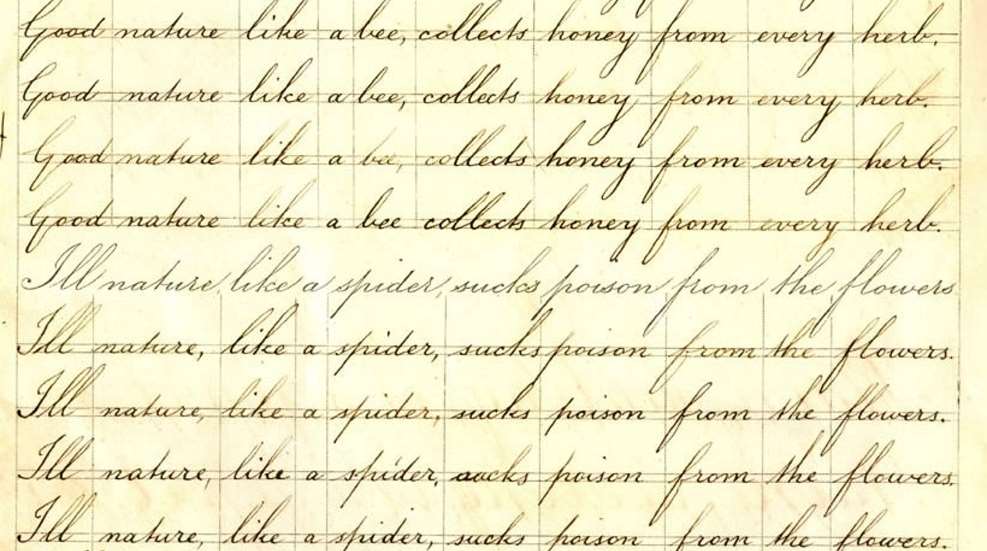 Good nature like a bee, collects honey from every herb.
Good nature like a bee, collects honey from every herb.
Good nature like a bee, collects honey from every herb.
Good nature like a bee collects honey from every herb.
Ill nature, like a spider, sucks poison from the flowers
Ill nature, like a spider, sucks poison from the flowers.
Ill nature, like a spider, sucks poison from the flowers.
Ill nature, like a spider, sucks poison from the flowers.
Ill nature, like a spider, sucks poison from the flowers.